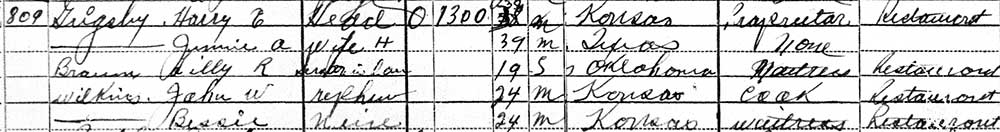 809 Grigsby Harry E Head O 1300 M Kansas Proprietor Restauront
Jimmie A Wife H 39 M Texas None
Braun Lilly R 19 S Oklahoma Waitress Restauront
Wilkins John W nephew 24 M Kansas Cook Restauront
Bessie Niece 24 M Kansas waitress Restauront